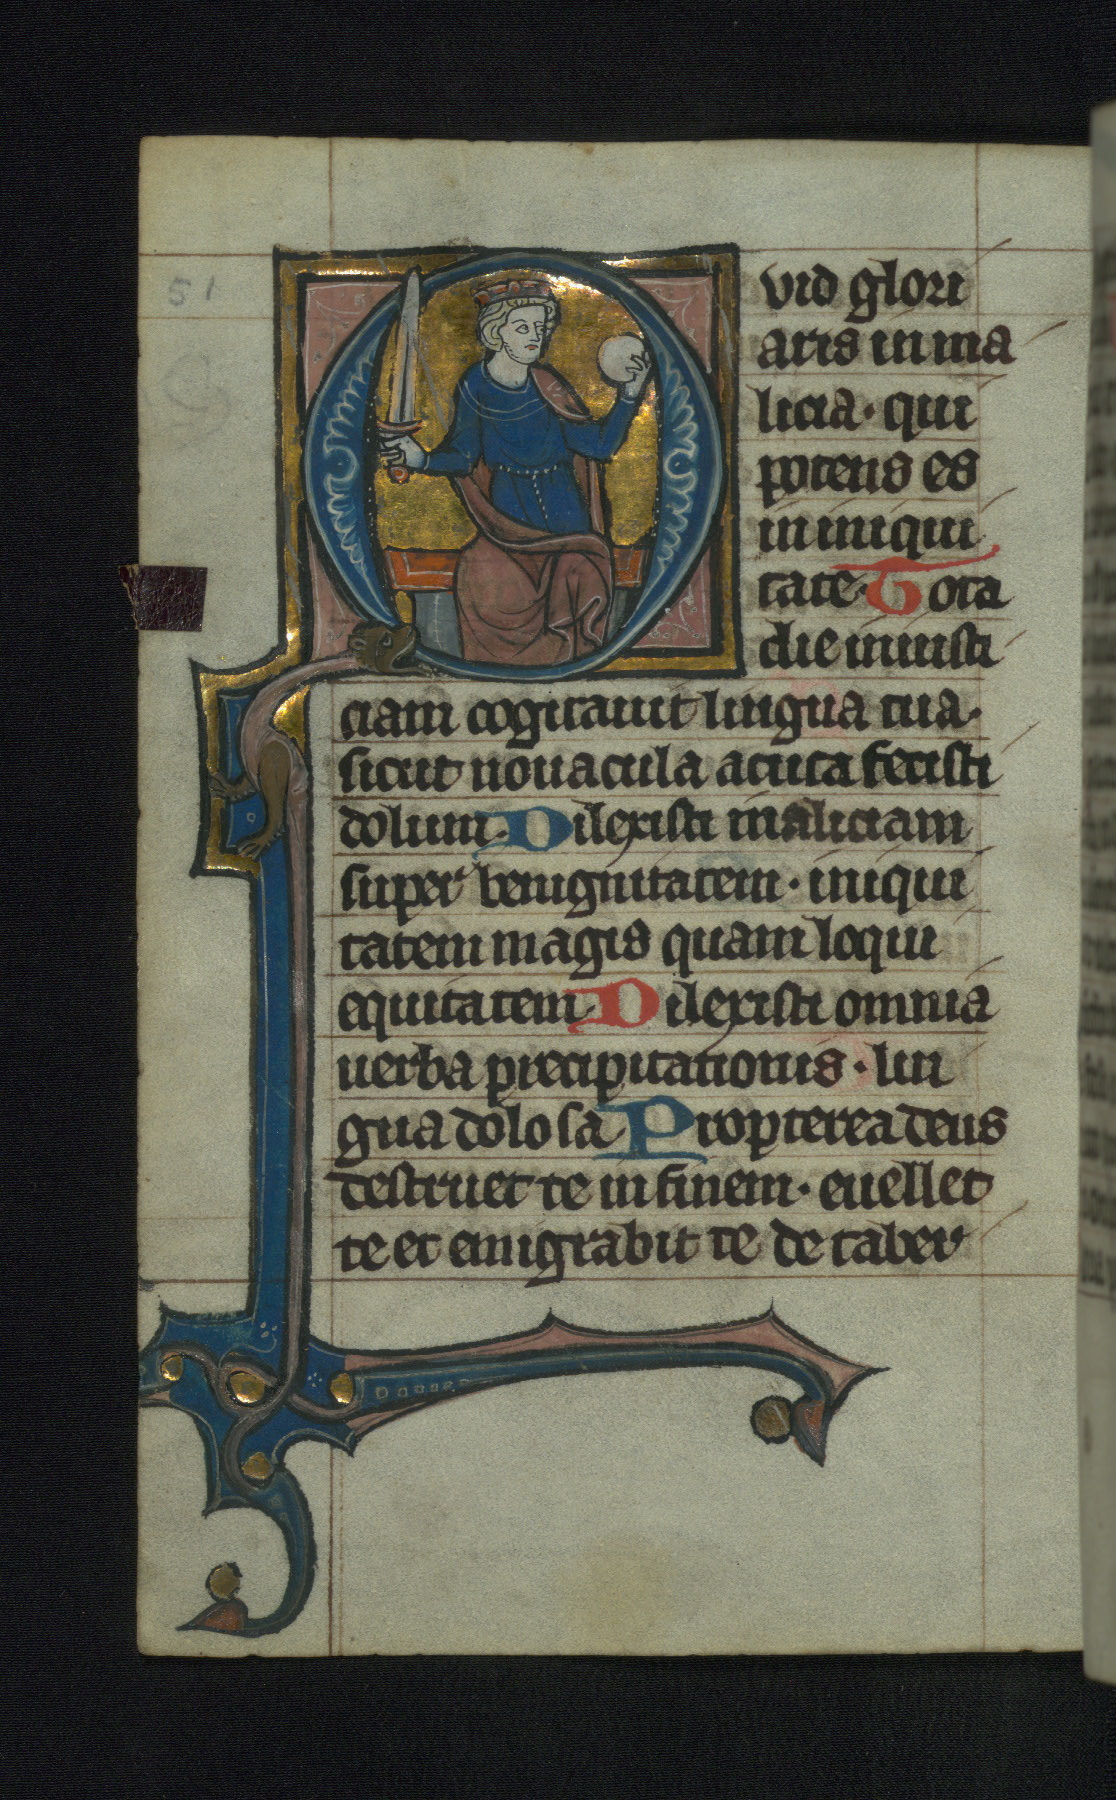 51
Quid glori
aris in ma
licia · qui
potens es
in iniqui
tate · Tota
die iniusti
ciam cogitauit lingua tua ·
sicut nouacula acuta fecisti
dolum · Dilexisti maliciam
super benignitatem · iniqui
tatem magis quam loqui
equitatem · Dilexisti omnia
uerba precipitationis · lin
gua dolosa Propterea deus
destruet te in finem · euellet
te et emigrabit te de taber